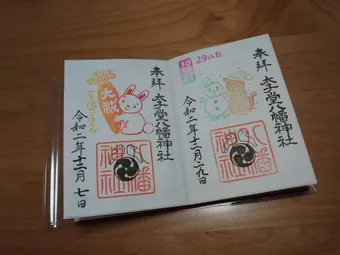 奉拝
太子堂八幡神社
令和二年十二月七日
大祓
八幡
神社
奉拝
太子堂八幡神社
令和二年十二月二九日
29の日
八幡
神社